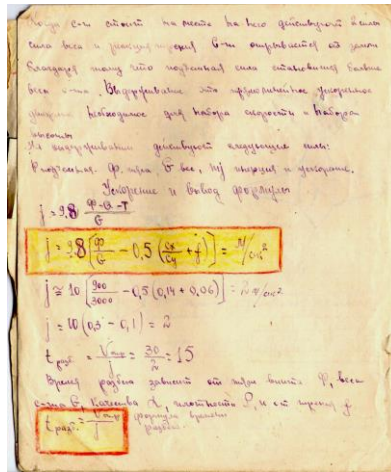 Когда с-т стоит на месте на него действуют 2 силы
сила веса и реакция С-т отрывается от земли
благодаря тому что подъемная сила становится больше
веса с-та. Выдерживание это прямолинейное ускоренное
движение необходимое для набора скорости и набором
высоты
На выдерживании действуют следующие силы:
Р подъемная. Ф. G вес, инерция и ускорение.
Ускорение и вывод формулы
j = 9.8 (Ф-Q-T)/G
j = 9.8 [Ф/G − 0,5 (Cx/Cy + f)] = м/сек²
j ≈ 10 [900/3000 − 0,5 (0,14 + 0,06)] = 2 м/сек²
j = 10 (0,3 − 0,1) = 2
t разб. = Vотр/j = 30/2 = 15
Время разбега зависит от тяги винта Ф, веса
с-та G, качества плотности и от трения f
t разб. = Vотр/j формула времени
разбега